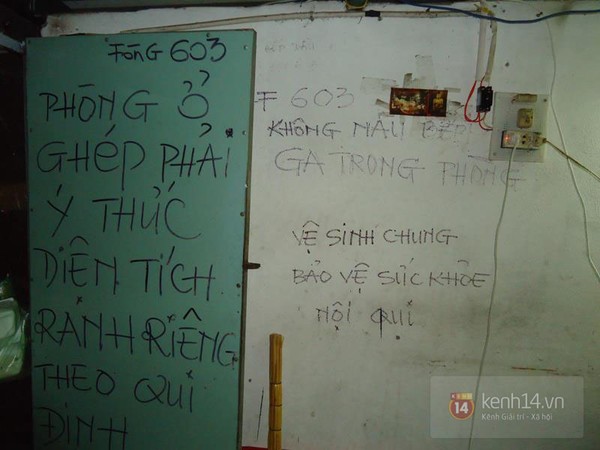 FònG 603
PHÒNG Ở
GHÉP PHẢI
Ý THỨC
DIỆN TÍCH
RẢNH RIÊNG
THEO QUI
ĐINH
F 603
KHÔNG NẤU BẾP
GA TRONG PHÒNG
VỆ SINH CHUNG
BẢO VỆ SỨC KHỎE
NỘI QUI
14
kenh14.vn
Kênh Giải trí - Xã hội